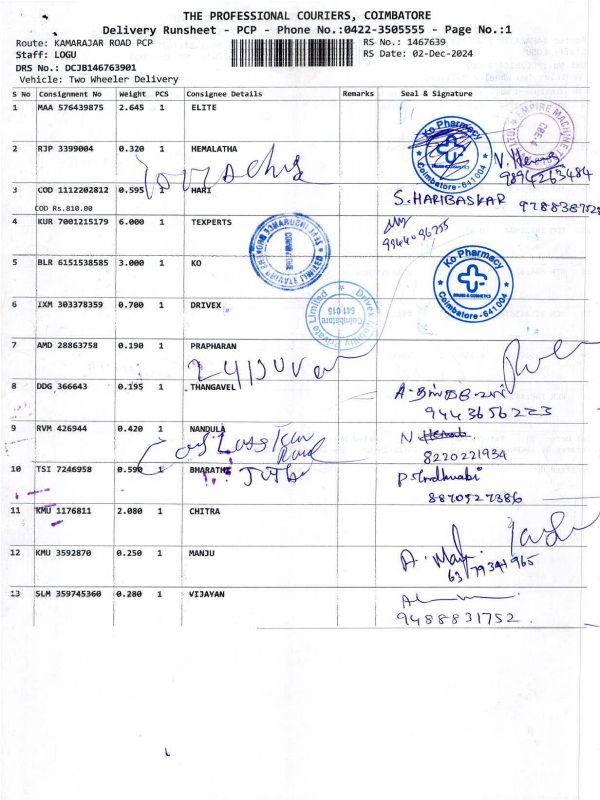 THE PROFESSIONAL COURIERS, COIMBATORE
Delivery Runsheet - PCP - Phone No.:0422-3505555 - Page No.:1
Route: KAMARAJAR ROAD PCP RS No.: 1467639
Staff: LOGU RS Date: 02-Dec-2024
DRS No.: DCJB146763901
Vehicle: Two Wheeler Delivery
S No Consignment No Weight PCS Consignee Details Remarks Seal & Signature
1 MAA 576439875 2.645 1 ELITE
EMPIRE MACHINE
Ko Pharmacy
Coimbatore-641004
2 RJP 3399004 0.320 1 HEMALATHA
9894263484
3 COD 1112202812 0.595 1 HARI S.HARIBASKAR
COD Rs.810.00
4 KUR 7001215179 6.000 1 TEXPERTS
5 BLR 6151538585 3.000 1 KO
Ko Pharmacy
DRUGS & COSMETICS
Coimbatore-641004
6 IXM 303378359 0.700 1 DRIVEX
Drivex Mobility Private Limited
Coimbatore
641 015
7 AMD 28863758 0.190 1 PRAPHARAN
8 DDG 366643 0.195 1 THANGAVEL
9443656223
9 RVM 426944 0.420 1 NANDULA
8220221934
10 TSI 7246958 0.590 1 BHARATHI
8870527386
11 KMU 1176811 2.080 1 CHITRA
12 KMU 3592870 0.250 1 MANJU
13 SLM 359745360 0.280 1 VIJAYAN
9488831752